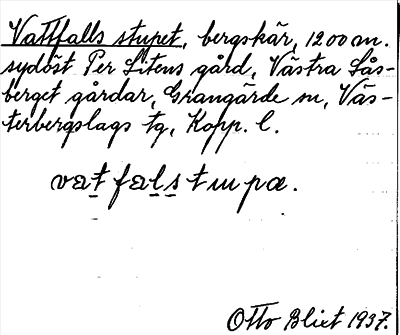 Vattfalls stupet, bergskär, 1200 m.
sydöst Per Litens gård, Västra Lås-
berget gårdar, Grangärde sn, Väs-
terbergslags tg, Kopp. l.
Otto Blixt 1937.